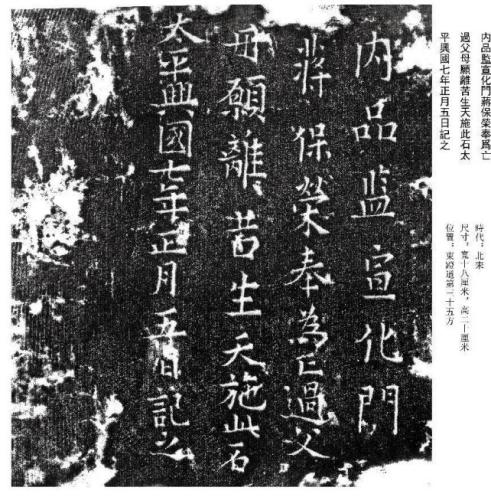 内品監宣化門蔣保榮奉爲亡
過父母願離苦生天施此石太
平興國七年正月五日記之
時代：北宋
尺寸：寬十八厘米，高二十厘米
位置：東磴道第二十五方
内品监宣化門
蔣保榮奉為亡過父
母願離苦生天施此石
太平興國七年正月五日記之